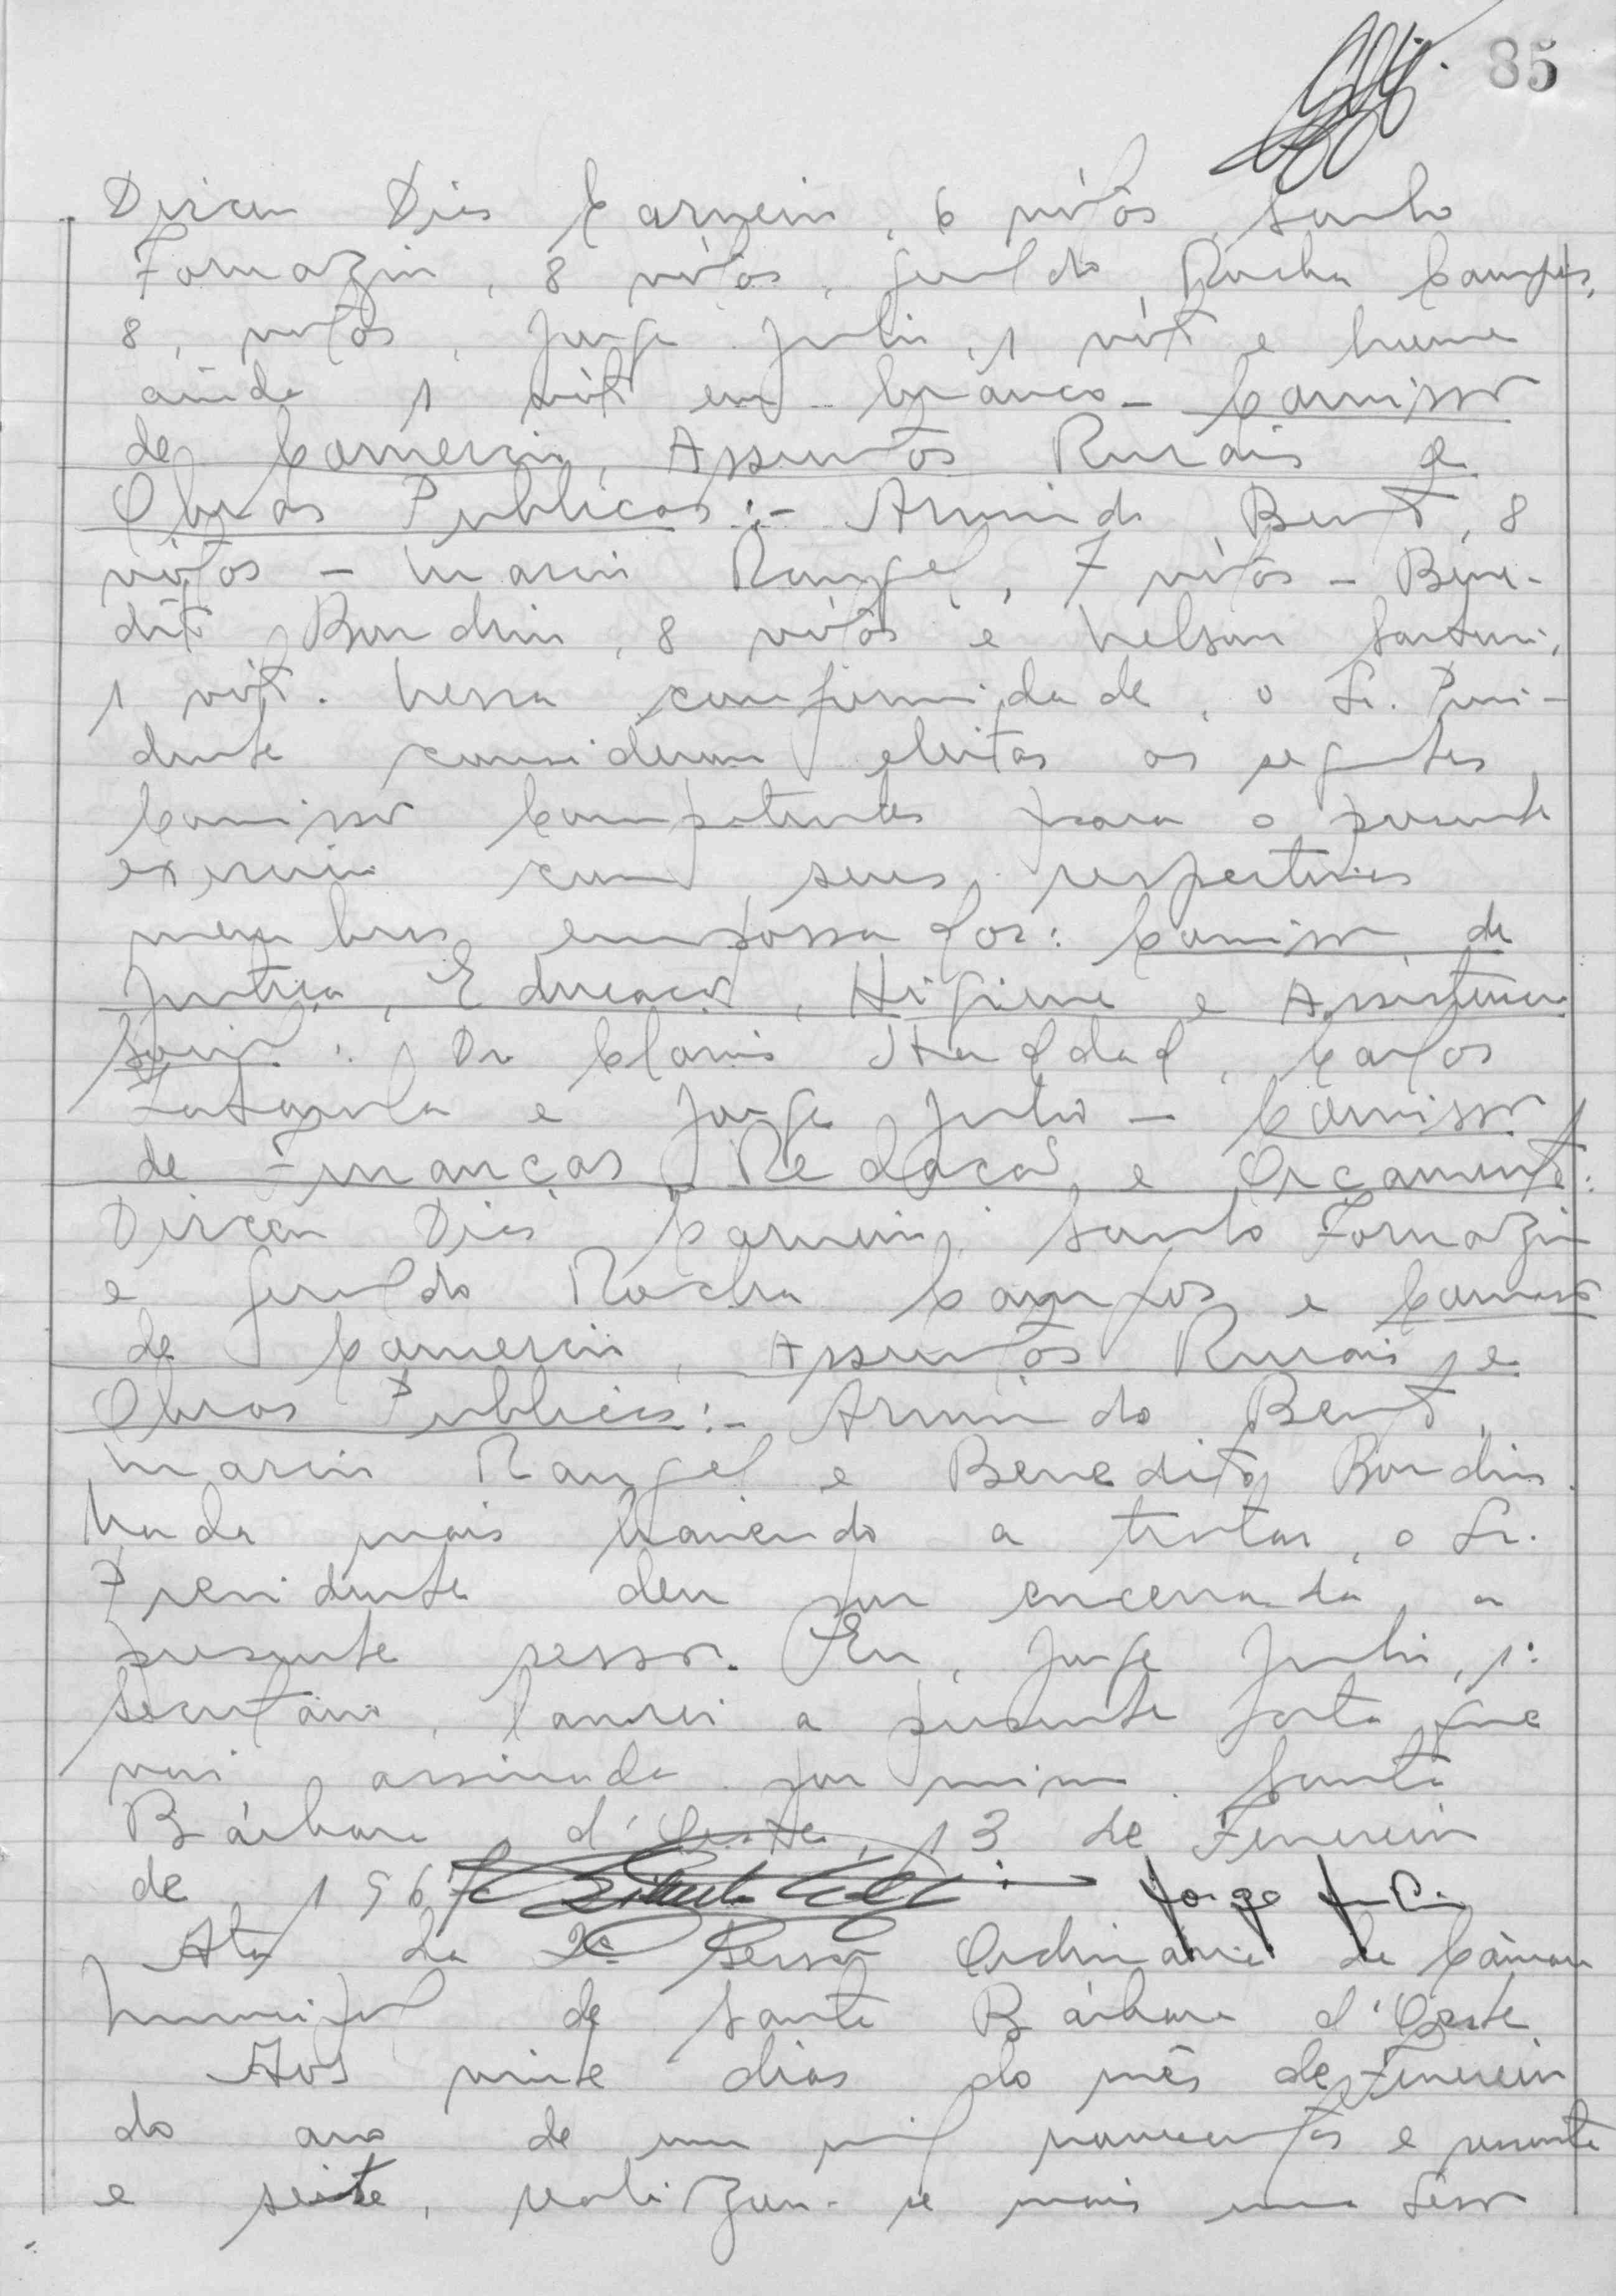 85
Dirceu Dias Carneiro, 6 vótos, Santo
Fornazin, 8 vótos, Geraldo Rocha Campos,
8, votos, Jorge Julio, 1 vóto e houve
ainda 1 vóto em branco - Comissão
de Comercio, Assuntos Rurais e
Obras Publicas :- Armindo Bento, 8
vótos - Mario Rangel, 7 vótos - Bene-
dito Bondrin, 8 vótos e Nelson Sartori,
1 vóto. Nessa conformidade, o Sr. Presi-
dente considerou eleitas as seguintes
Comissão Competentes para o presente
exercicio com seus respectivos
membros empossados: Comissão de
Justiça, Educação, Higiene e Assistencia
Social : Dr Clovis Haddad, Carlos
e Jorge Julio - Comissão
de Finanças, Redação e Orçamento:
Dirceu Dias Carneiro, Santo Fornazin
e Geraldo Rocha Campos e Comissão
de Comercio, Assuntos Rurais e
Obras Publicas :- Armindo Bento,
Mario Rangel e Benedito Bondrin.
Nada mais havendo a tratar, o Sr.
Presidente deu por encerrada a
presente sessão. Eu, Jorge Julio, 1º
Secretario, lavrei a presente que
vai assinada por mim. Santa
Bárbara d'Oeste, 13 de Fevereiro
de 1967 Jorge Julio
Ata da 2ª Sessão Ordinaria da Câmara
Municipal de Santa Bárbara d'Oeste
Aos vinte dias do mês de Fevereiro
do ano de um mil novecentos e sessenta
e seite, realizou-se mais uma Sessão